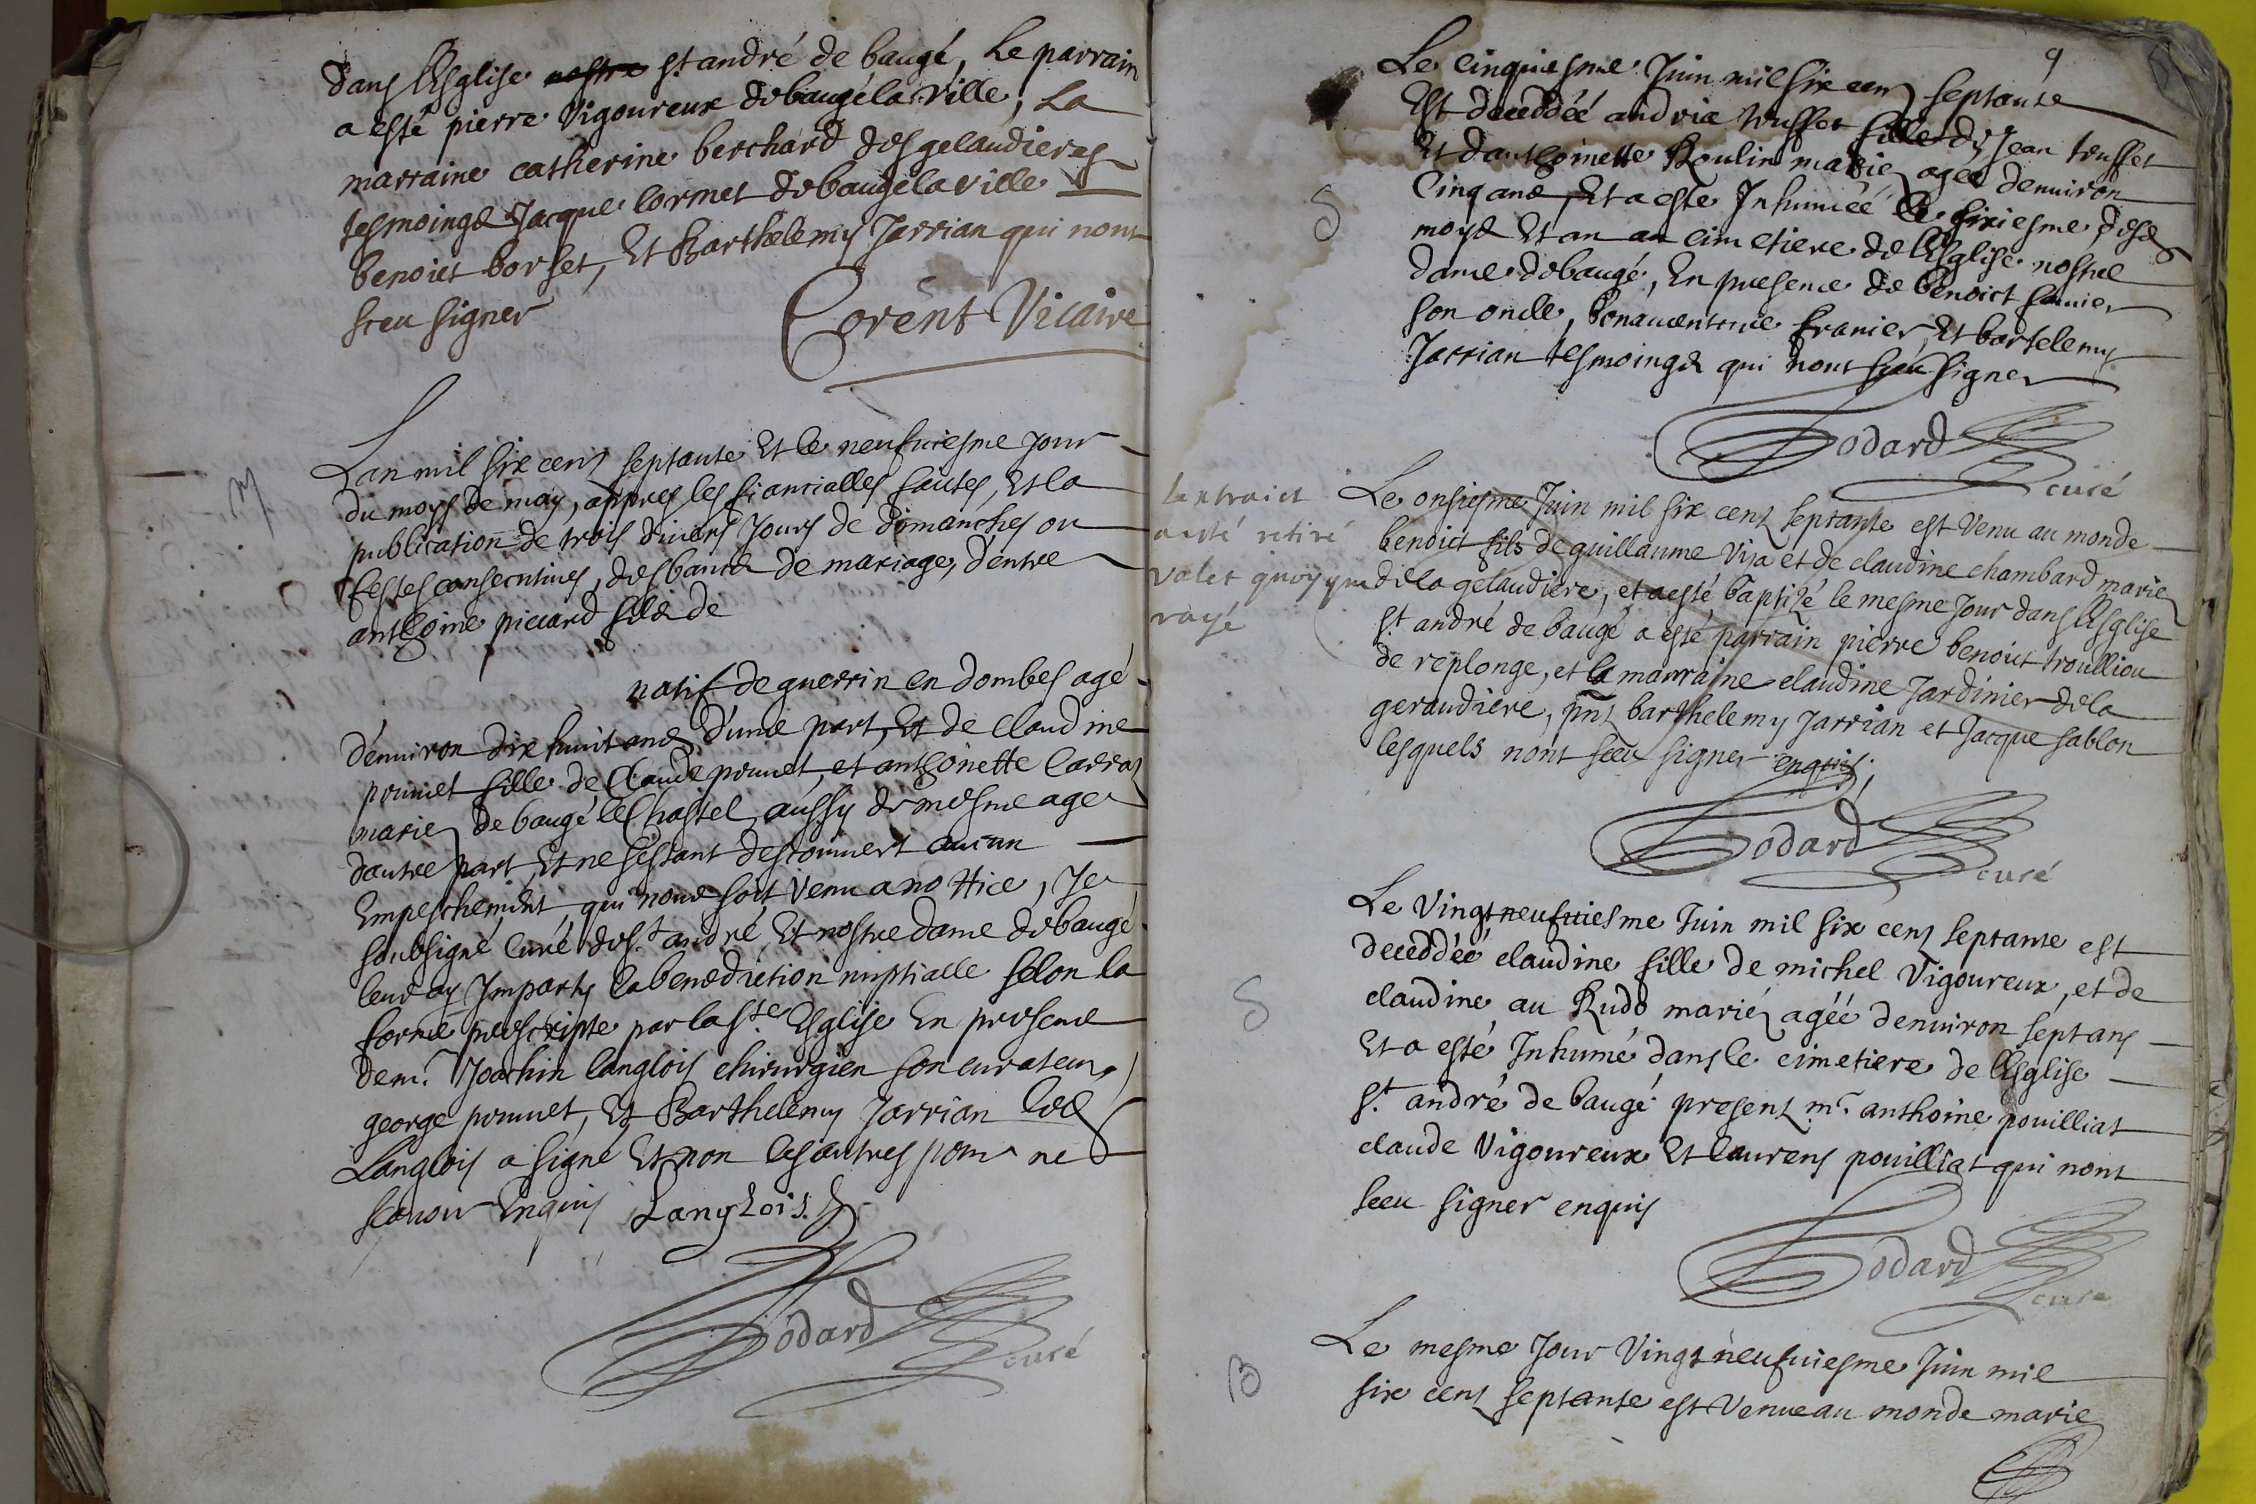 dans l'Esglise nostre st andré de baugé, Le parrain
a esté pierre Vigoureux de baugé la Ville, La
marraine catherine berchard des gelaudieres
tesmoings Jacque cormet de baugé la ville
benoict borset, Et Barthelemy Jarrian qui nont
sceu signer
Corent Vicaire
M
Lan mil six cens septante Et le neufuiesme jour
du moys de may, appres les fiancialles faites, Et la
publication de trois divers Jours de dimanches ou
festes consecutives, des bancs de mariage, dentre
anthoine piccard fils de
natif de guerrin en dombes agé
denuiron dix huit ans dune part, Et de Claudine
ponnet fille de Claude ponnet, et anthoinette Carraz
mariez de baugé le Chastel aussy de mesme age
dautre part, Et ne sestant descouuert aucun
Empeschement, qui nous soit Venu a no ttice, Je
soubsigné Curé de st andré Et nostre dame de baugé
leur ay Imparty la benediction nuptialle selon la
forme prescripte par la ste Esglise En presence
de mr. Joachin langlois chirurgien son curateur,
george ponnet, Et Barthelemy Jarrian led
Langlois a signé Et non les autres pour ne
scauoir Enquis Langlois.
Godard
curé
9
Le cinquiesme Juin mil six cens septante
Est deceddéé andria truffet fille de Jean truffet
Et dantoinette Roulin mariez agéé denuiron
S
Cinq ans, Et a esté Inhuméé le sixiesme desd
moys Et an au cimetiere de l'Esglise nostre
dame de baugé, En presence de benoict
son oncle, bonauenture franier, Et bartelemy
Jarrian tesmoings qui nont sceu signer
Godard
curé
Lextraict
a esté retiré
Valet quoy que
rayé
Le onsiesme Juin mil six cens septante est Venu au monde
benoict fils de guillaume Vixa et de claudine chambard mariez
de la gelaudiere, et a esté baptizé le mesme Jour dans l'Esglise
st andré de baugé a esté parrain pierre benoict troulliou
de replonge, et la marraine claudine Jardinier de la
geraudiere, pnts barthelemy Jarrian et Jacque sablon
lesquels nont sceu signer enquis,
Godard
curé
Le Vingtneufuiesme Juin mil six cens septante est
deceddéé claudine fille de michel Vigoureux, et de
S
claudine au Rudo mariéz agéé denuiron sept ans
Et a esté Inhumé dans le cimetiere de l'Esglise
st andré de baugé presens mr anthoine pouilliat
claude Vigoureux Et laurens pouilliat qui nont
sceu signer enquis
Godard
curé
B
Le mesme Jour Vingt neufuiesme Juin mil
six cens septante est Venue au monde marie